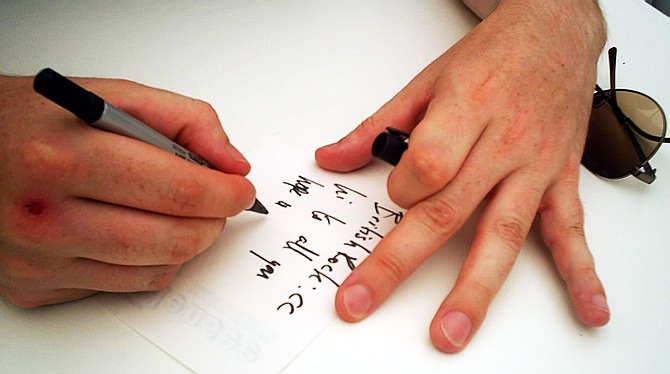 British Rock.cc
hi to all you
hope